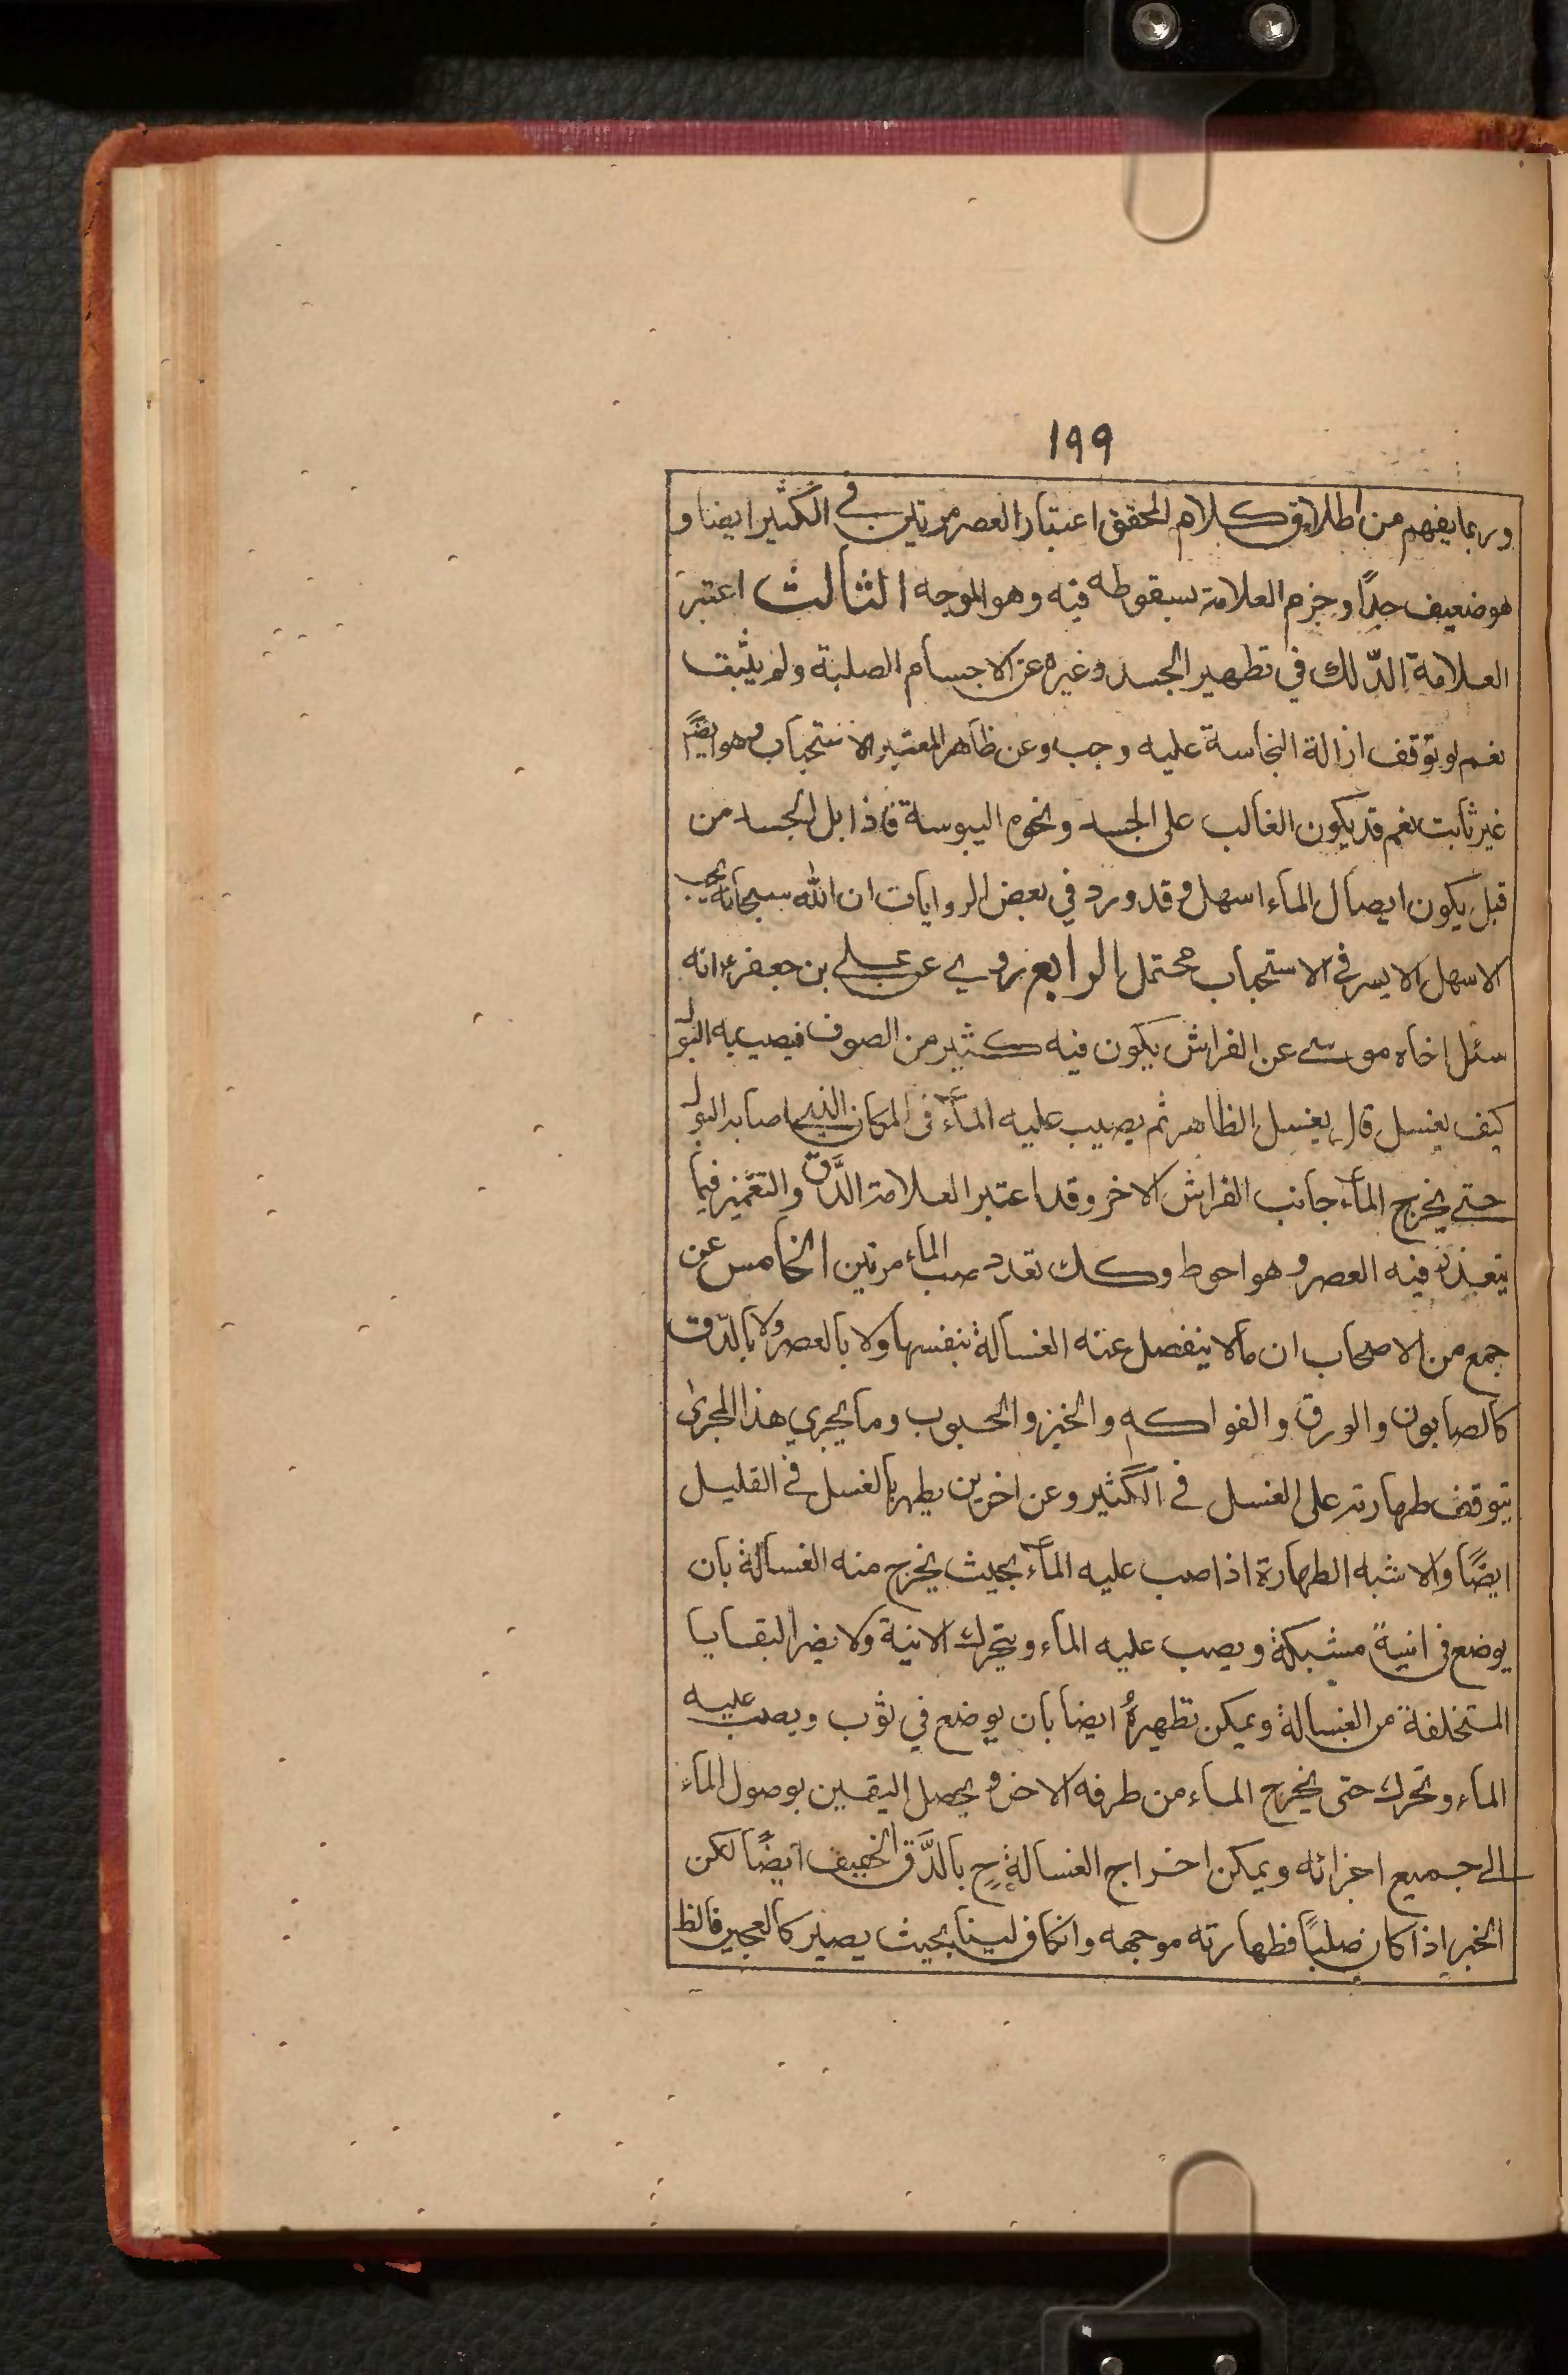 ١٩٩
وربما يفهم من اطلاق كلام المحقق اعتبار العصر مرتين في الكثير ايضا و
هو ضعيف جدًا وجزم العلامة بسقوطه فيه وهو الموجه الثالث اعتبر
العلامة الدّلك في تطهير الجسد وغيره عن الاجسام الصلبة ولم يثبت
نعم لو توقف ازالة النجاسة عليه وجب وعن ظاهر المعتبر الاستحباب وهو ايضًا
غير ثابت نعم قد يكون الغالب على الجسد ونحوه اليبوسة فاذا بل الجسد من
قبل يكون ايصال الماء اسهل وقد ورد في بعض الروايات ان الله سبحانه يحب
الاسهل الايسر في الاستحباب محتمل الرابع روي عن علي بن جعفر ع انه
سئل اخاه موسى عن الفراش يكون فيه كثير من الصوف فيصيبه البول
كيف يغسل قال يغسل الظاهر ثم يصيب عليه المآء في المكان الذي اصابه البول
حتى يخرج المآء جانب الفراش الاخر وقد اعتبر العلامة الدَّقّ والتغميز فيما
يتعذر فيه العصر وهو احوط وكك تعدد صب الماء مرتين الخامس عن
جمع من الاصحاب ان مالا ينفصل عنه الغسالة بنفسها ولا بالعصر ولا بالدّق
كالصابون والورق والفواكه والخبز والحبوب وما يجري هذا المجرى
يتوقف طهارته على الغسل في الكثير وعن اخرين يطهر بالغسل في القليل
ايضًا والاشبه الطهارة اذا صب عليه المآء بحيث يخرج منه الغسالة بان
يوضع في انيةً مشبكة ويصب عليه الماء ويتحرك الانية ولا يضر البقايا
المتخلفة من الغسالة ويمكن تطهيرهُ ايضا بان يوضع في ثوب ويصب عليه
الماء وتحرك حتى يخرج الماء من طرفه الاخر ويحصل اليقين بوصول الماء
الى جميع اجزائه ويمكن اخراج الغسالة ح بالدَّق الخفيف ايضًا لكن
الخبز اذا كان صلبًا فطهارته موجهه وانكان لينا بحيث يصير كالعجين فالظ